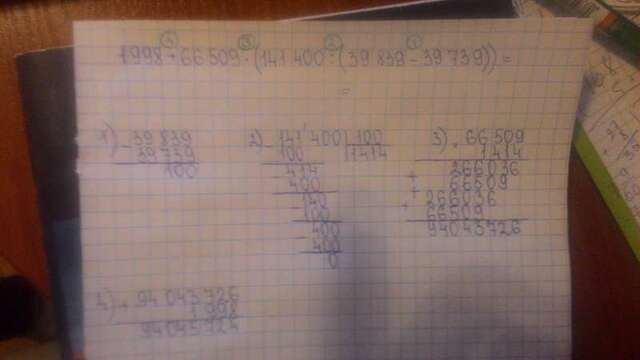 ④ ③ ② ①
1998 + 66 509 · (141 400 : (39 839 − 39 739)) =
=
1) − 39 839
39 739
100
2) − 141 400 | 100
100 | 1414
− 414
400
− 140
100
− 400
400
0
3) × 66 509
1414
266036
+ 66509
+ 266036
+ 66509
94043726
4) + 94 043 726
1 998
94 045 724